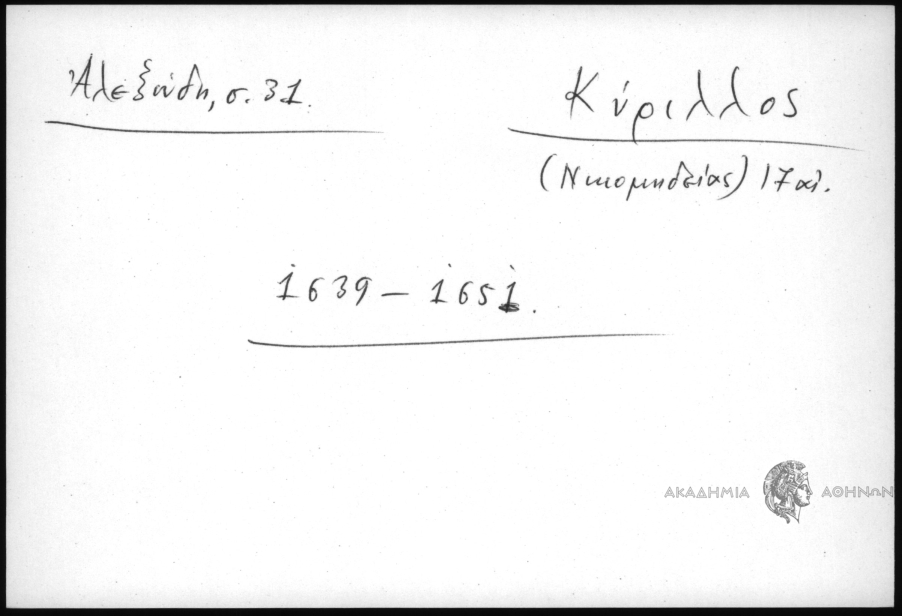 Ἀλεξούδη, σ. 31.
Κύριλλος
(Νικομηδείας) 17 αἰ.
1639 – 1651.
ΑΚΑΔΗΜΙΑ ΑΘΗΝΩΝ